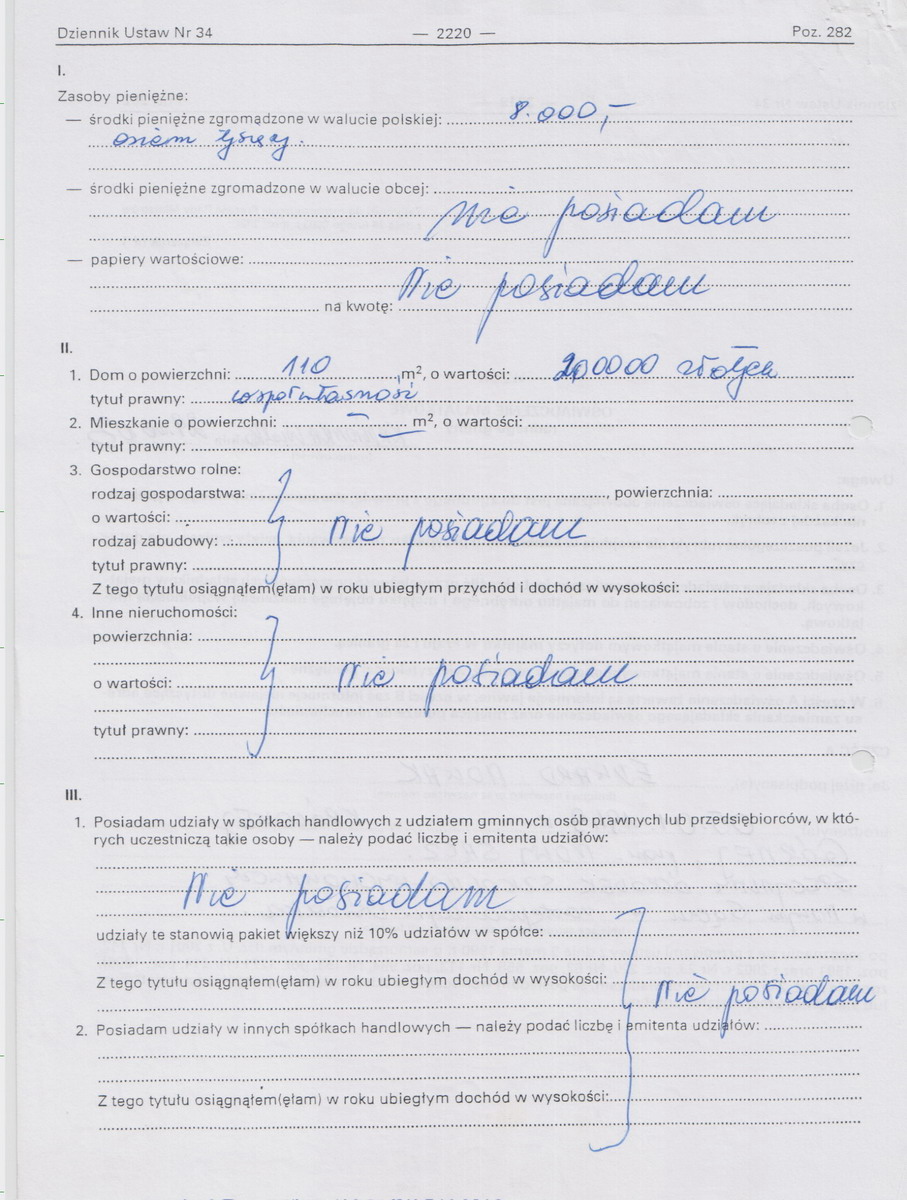 Dziennik Ustaw Nr 34 — 2220 — Poz. 282
I.
Zasoby pieniężne:
— środki pieniężne zgromądzone w walucie polskiej: 8.000,-
osiem tysięcy.
— środki pieniężne zgromadzone w walucie obcej:
nie posiadam
— papiery wartościowe:
Nie posiadam
na kwotę:
II.
1. Dom o powierzchni: 110 m², o wartości: 200000 złotych
tytuł prawny: współwłasność
2. Mieszkanie o powierzchni: — m², o wartości:
tytuł prawny: —
3. Gospodarstwo rolne:
rodzaj gospodarstwa: , powierzchnia:
o wartości:
rodzaj zabudowy: Nie posiadam
tytuł prawny:
Z tego tytułu osiągnąłem(ęłam) w roku ubiegłym przychód i dochód w wysokości:
4. Inne nieruchomości:
powierzchnia:
o wartości: Nie posiadam
tytuł prawny:
III.
1. Posiadam udziały w spółkach handlowych z udziałem gminnych osób prawnych lub przedsiębiorców, w któ-
rych uczestniczą takie osoby — należy podać liczbę i emitenta udziałów:
Nie posiadam
udziały te stanowią pakiet większy niż 10% udziałów w spółce:
Z tego tytułu osiągnąłem(ęłam) w roku ubiegłym dochód w wysokości:
Nie posiadam
2. Posiadam udziały w innych spółkach handlowych — należy podać liczbę i emitenta udziałów:
Z tego tytułu osiągnąłem(ęłam) w roku ubiegłym dochód w wysokości: